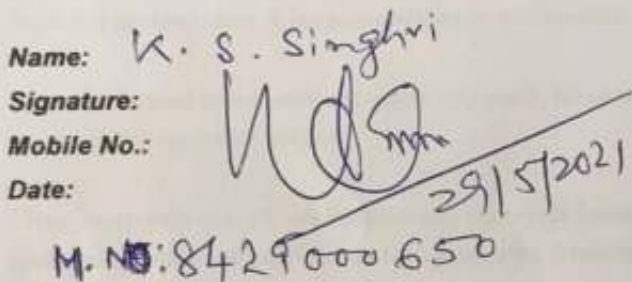 Name: K. S. Singhvi
Signature:
Mobile No.:
Date: 29/5/2021
M. NO: 8429000650